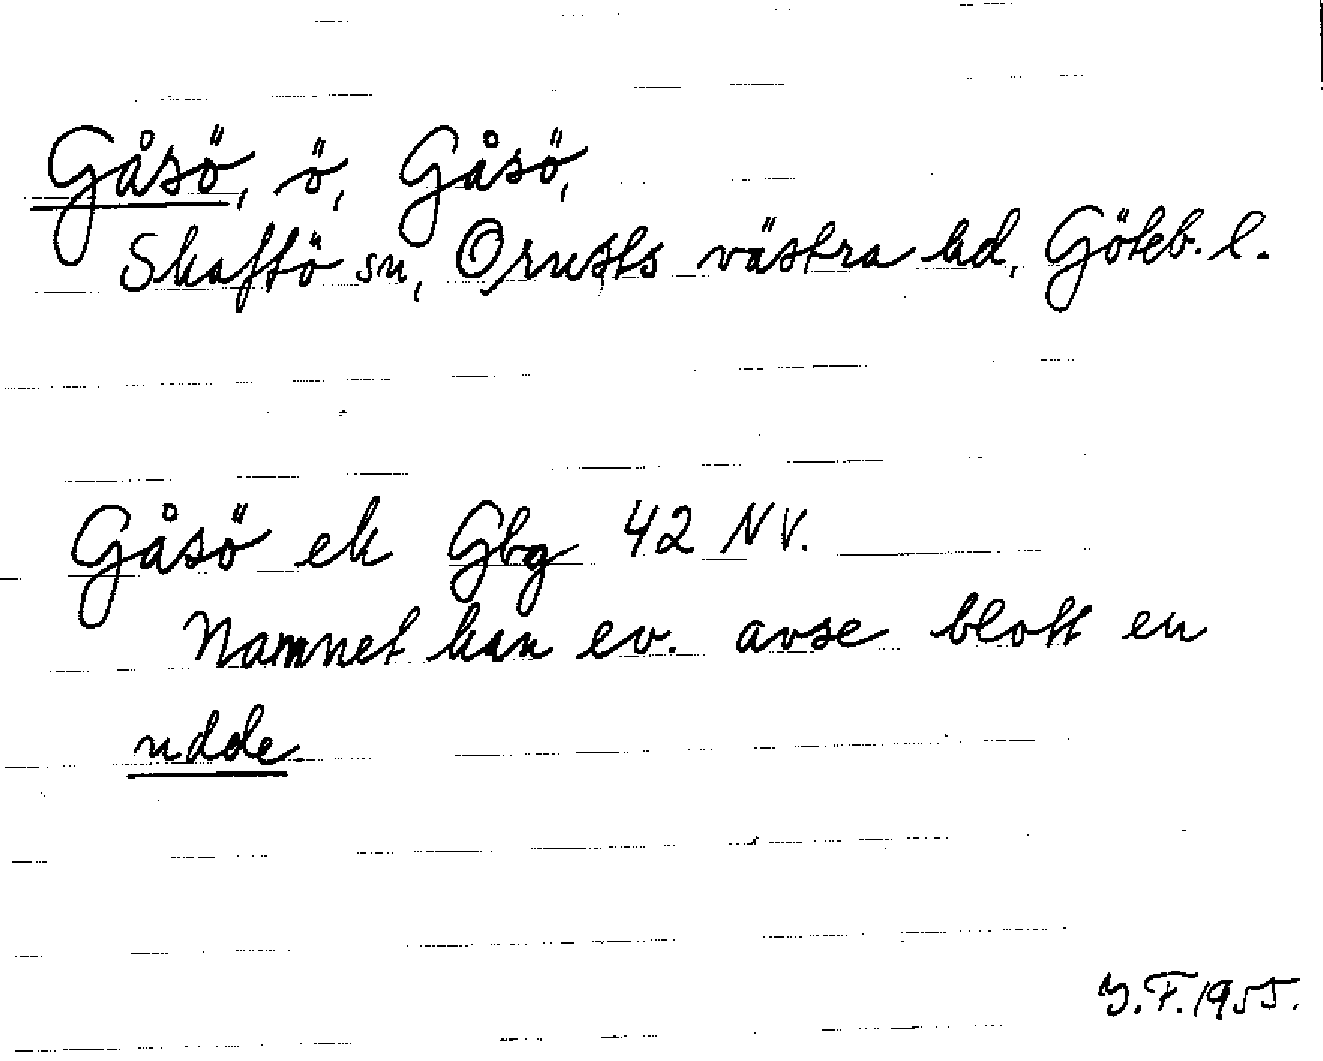 Gåsö, ö, Gåsö,
Skaftö sn, Orusts västra hd, Göteb. l.
Gåsö ek Gbg 42 NV.
Namnet kan ev. avse blott en
udde
Y.F. 1955.